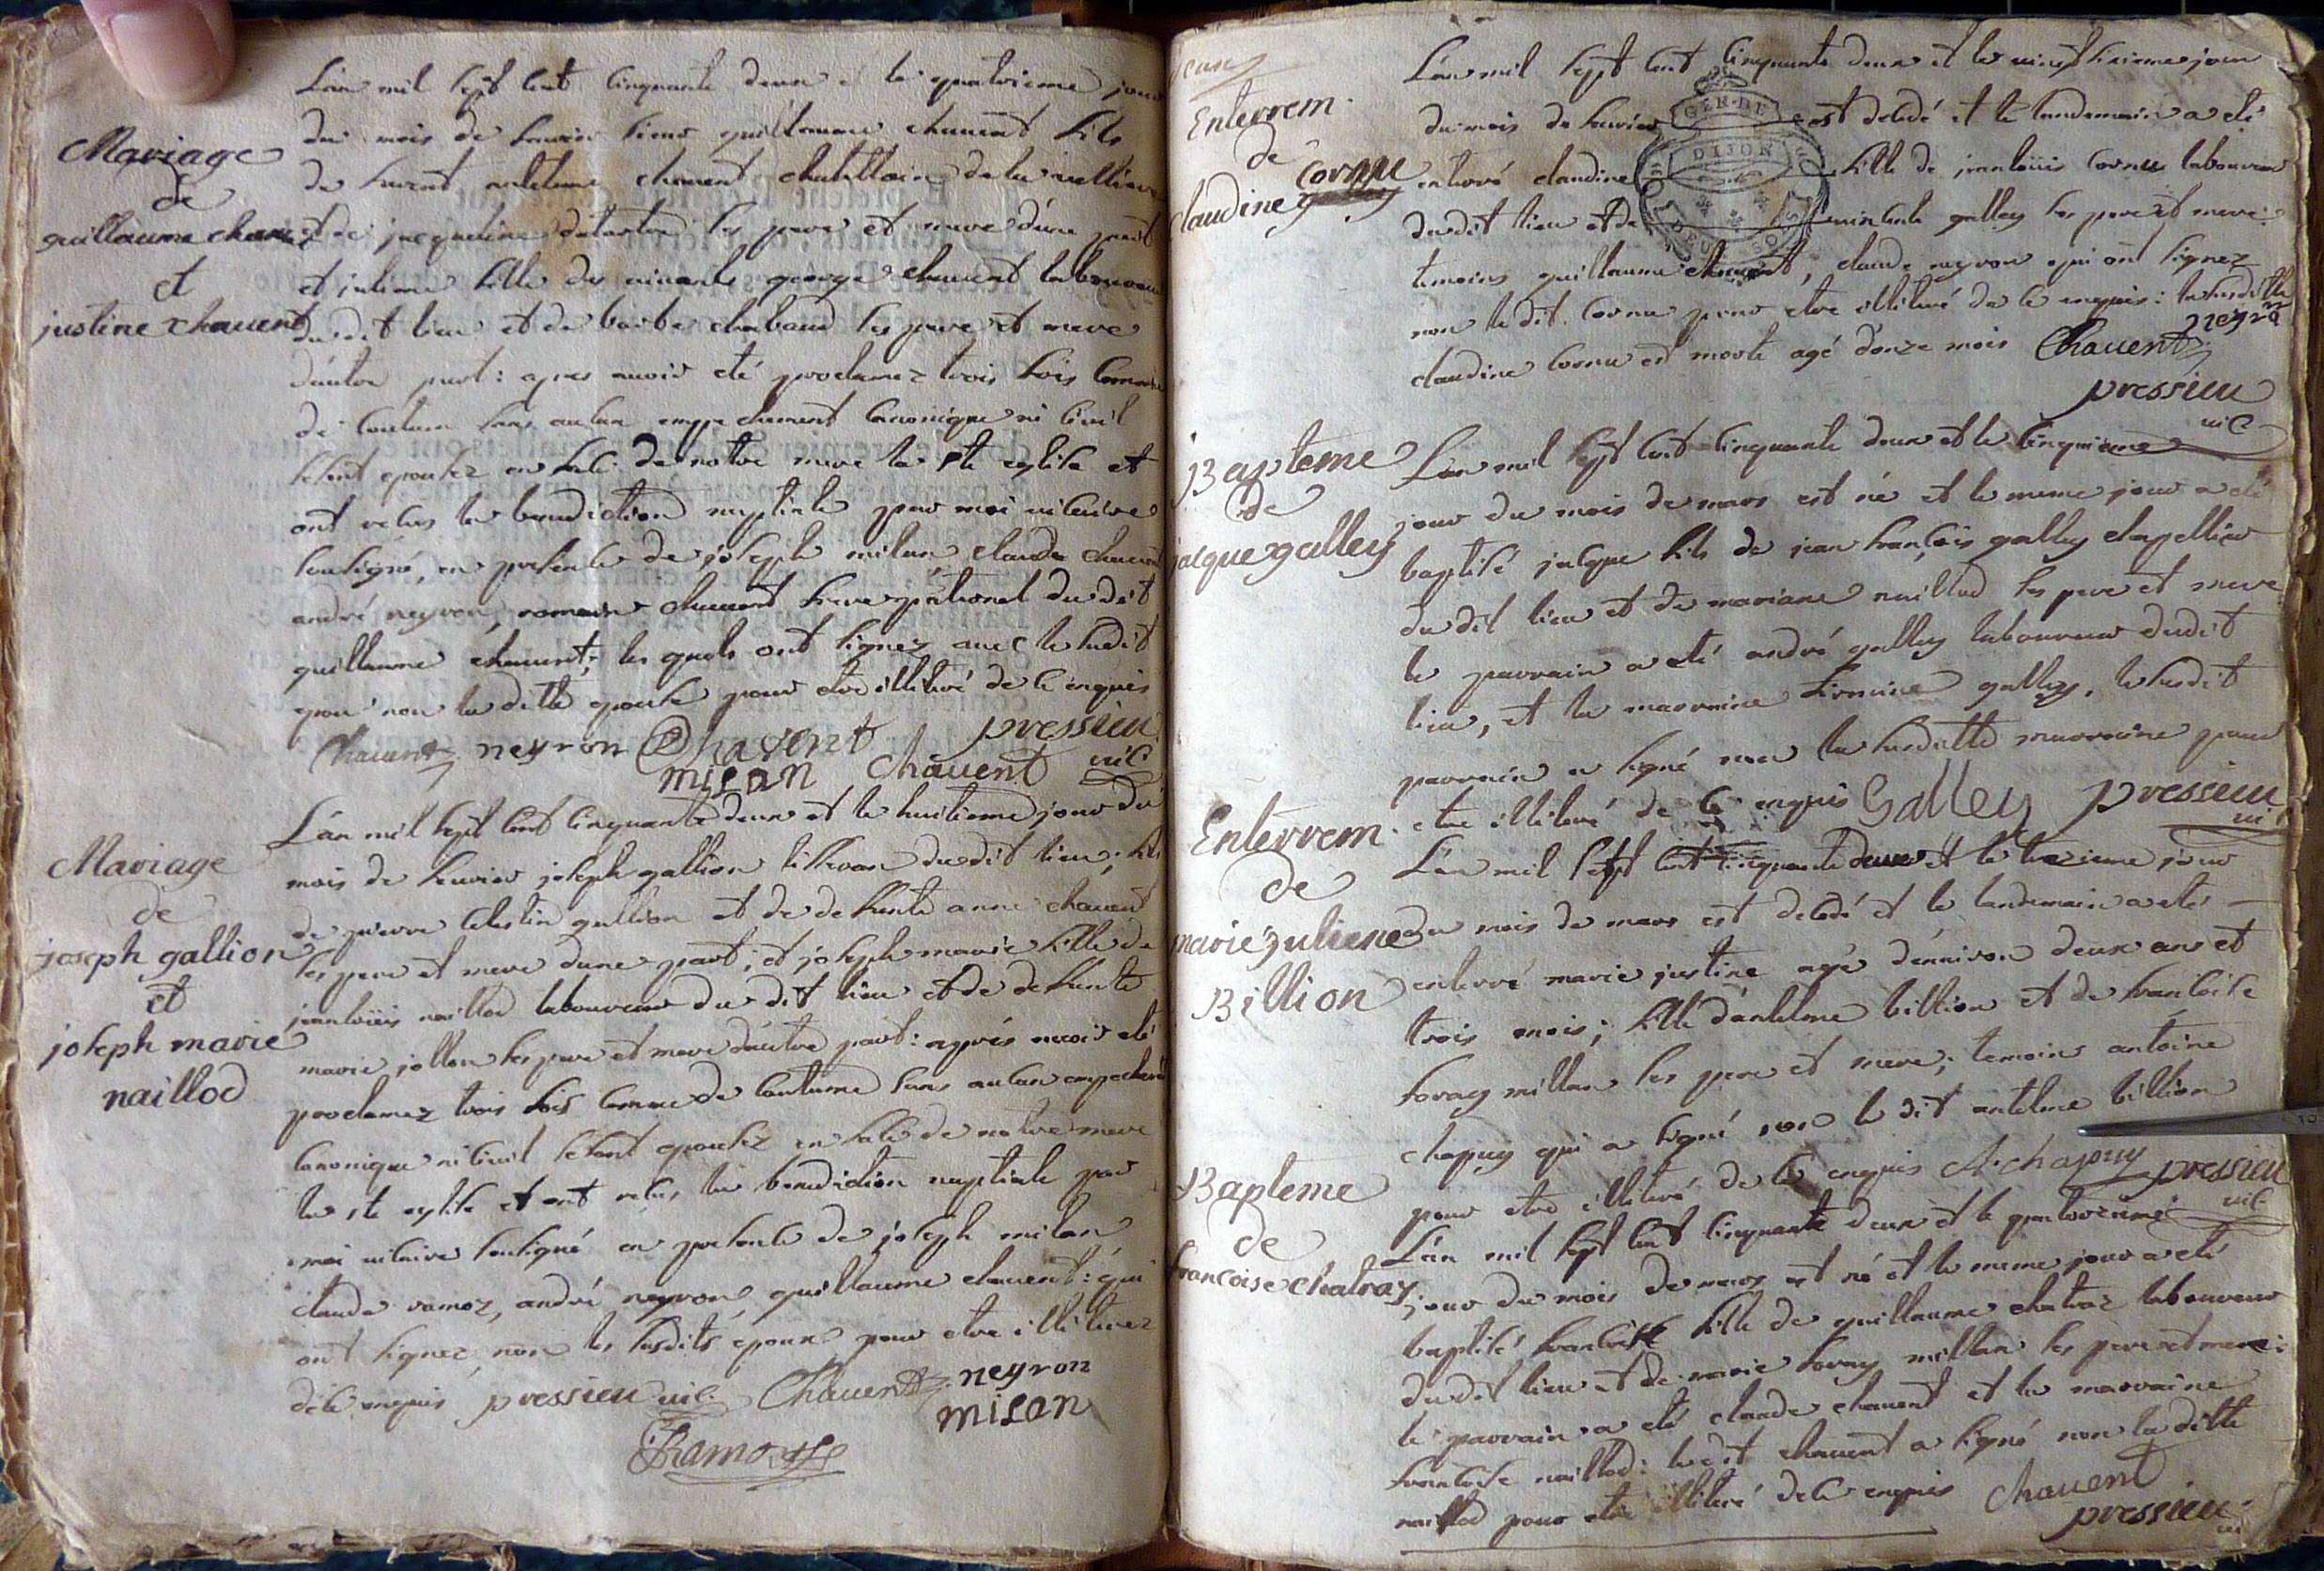 Mariage
de
guillaume chauent
et
justine chauent
L'an mil sept cent cinquante deux et le quatrieme jour
du mois de feurier sieur guillaume chauent fils
de laurent antelme chauent chatellain de la
et de jacqueline ses pere et mere d'une part
et juliene fille de george chauent laboureur
du dit lieu et de barbe chabaud ses pere et mere
d'autre part: apres auoir eté proclamez trois fois comme
de coutume sans aucun empechement canonique ni ciuil
se sont epousez en face de notre mere la ste eglise et
ont recus la benediction nuptiale par moi uicaire
soussigné, en presence de joseph milan, claude chauent
andré neyron, romain chauent frere paternel du dit
guillaume chauent; les quels ont signez auec le susdit
epou' non la ditte epouse pour etre illiteré de ce enquis
Chauent neyron Chavent pressieu
milan Chauent uic:
Mariage
de
joseph gallion
et
joseph marie
naillod
L'an mil sept cent cinquante deux et le huitieme jour du
mois de feurier joseph gallion tisseran du dit lieu; fils
de pierre celestin gallion et de defunte anne chauent
ses pere et mere d'une part; et joseph marie fille de
jean loüis naillod laboureur du dit lieu et de defunte
marie jollon ses pere et mere d'autre part: aprés auoir eté
proclamez trois fois comme de coutume sans aucun empechement
canonique ni ciuil se sont epousez en face de notre mere
la ste eglise et ont recus la benediction nuptiale par
moi uicaire soussigné en presence de joseph milan
claude ramoz, andré neyron, guillaume chauent: qui
ont signez, non les susdits epoux pour etre illiterez
de ce enquis pressieu uic: Chauent neyron
milan
Ramoz
Enterrem.
de
claudine cornu
L'an mil sept cent cinquante deux et le uingt jour
du mois de feurier est decedé et le landemain a eté
enterré claudine fille de jean loüis cornu laboureur
du dit lieu et de galley ses pere et mere:
temoins guillaume chauent, claude neyron qui ont signez
non le dit cornu pour etre illiteré de ce enquis: la susditte
claudine cornu est morte agé d'onze mois Chauent neyron
pressieu
uic
GEN. DE
DIJON
DEUX SOLS
Bapteme
de
jacque galley
L'an mil sept cent cinquante deux et le cinquieme
jour du mois de mars est né et le meme jour a eté
baptisé jacque fils de jean françois galley chapellier
du dit lieu et de mariane naillod ses pere et mere
le parrain a eté andré galley laboureur dudit
lieu, et la marraine galley. le susdit
parrain a signé non la susditte marraine pour
etre illiteré de ce enquis Galley pressieu
uic
Enterrem.
de
marie juliene
Billion
L'an mil sept cent cinquante deux et le trezieme jour
du mois de mars est decedé et le landemain a eté
enterré marie justine agé d'enuiron deux ans et
trois mois; fille d'antelme billion et de francoise
foray millan ses pere et mere; temoins antoine
chapuy qui a signé non le dit antelme billion
pour etre illiteré de ce enquis A. chapuy pressieu
uic.
Bapteme
de
francoise chatray
L'an mil sept cent cinquante deux et le quatorzieme
jour du mois de mars est né et le meme jour a eté
baptisé francoise fille de guillaume chatraz laboureur
du dit lieu et de marie foray millan ses pere et mere:
le parrain a eté claude chauent et la marraine
francoise naillod: le dit chauent a signé non la ditte
naillod pour etre illiteré de ce enquis Chauent
pressieu
uic